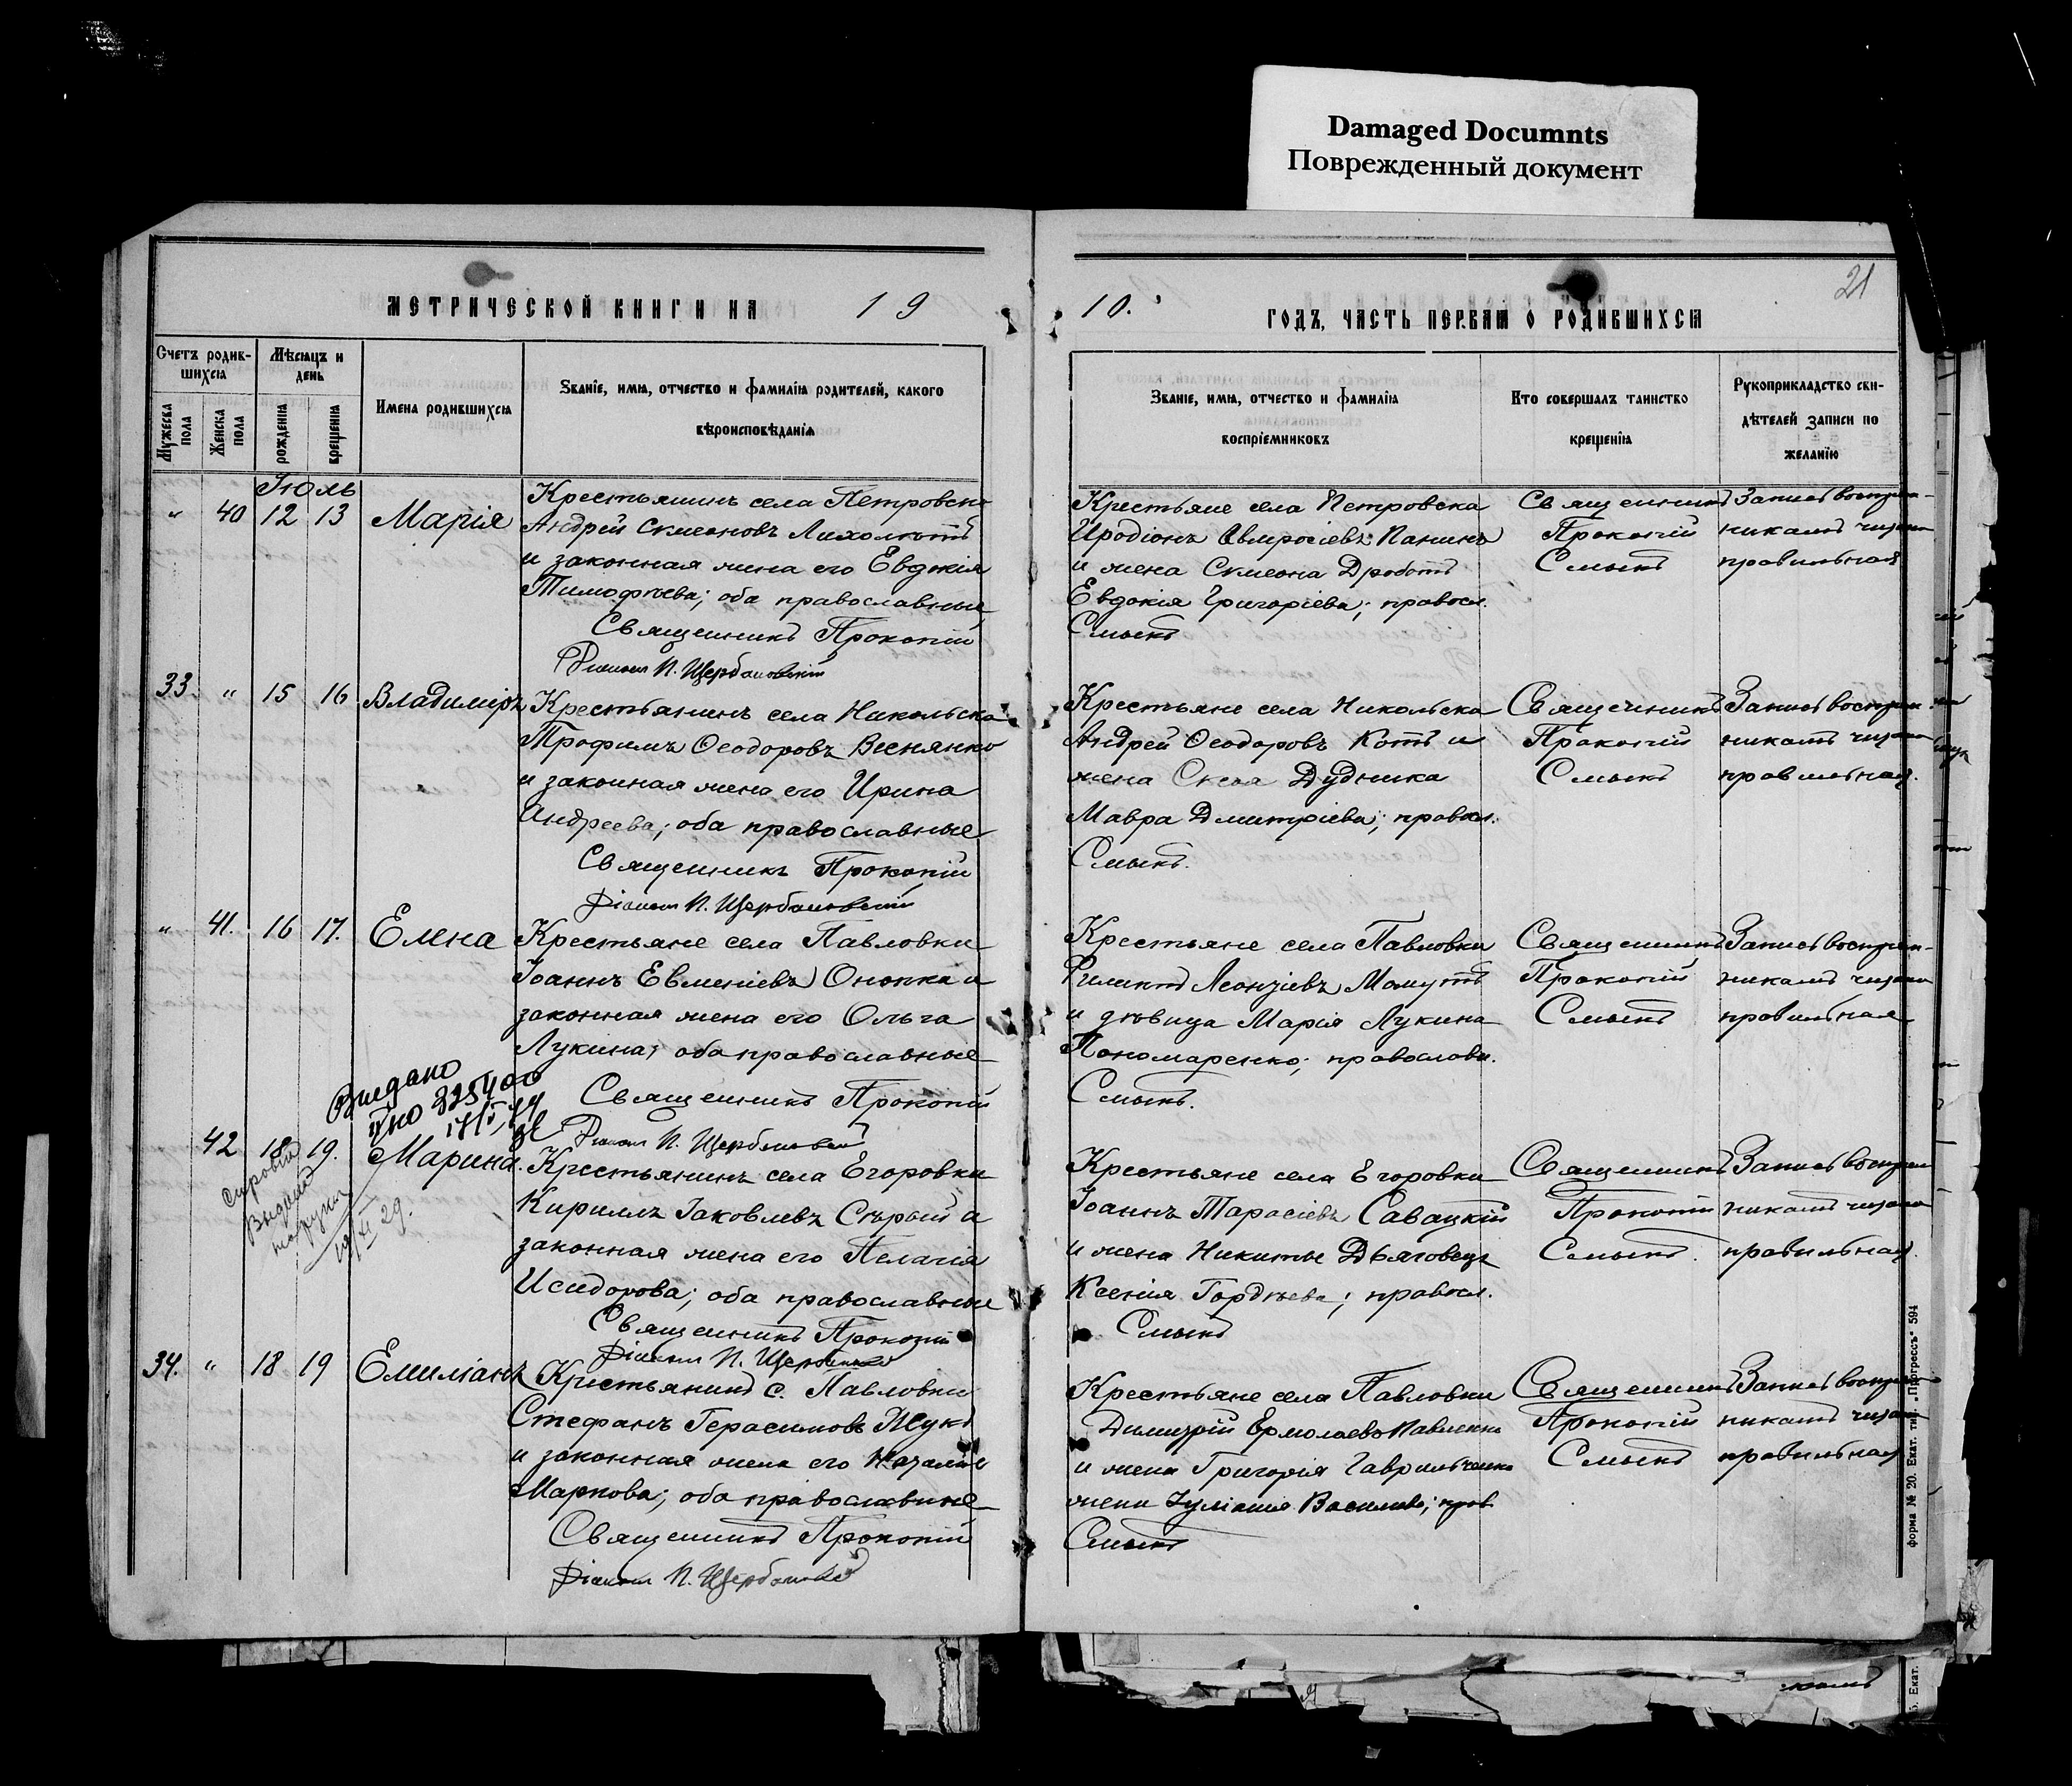 Damaged Documnts
Поврежденный документ
21
МЕТРИЧЕСКОЙ КНИГИ НА 19
10. ГОДЪ, ЧАСТЬ ПЕРВАЯ О РОДИВШИХСЯ
Счетъ родив-
шихся
Мѣсяцъ и
день
Мужеска
пола
Женска
пола
рожденія
крещенія
Имена родившихся
Званіе, имя, отчество и фамилія родителей, какого
вѣроисповѣданія
Званіе, имя, отчество и фамилія
воспріемниковъ
Кто совершалъ таинство
крещенія
Рукоприкладство сви-
дѣтелей записи по
желанію
Іюль
" 40 12 13 Марія
Крестьянинъ села Петровска
Андрей Симеоновъ
и законная жена его Евдокія
Тимофѣева; оба православные
Священникъ Прокопій
Діаконъ П. Щербановскій
Крестьяне села Петровска
Иродіонъ Амвросіевъ Панинъ
и жена Симеона Дроботъ
Евдокія Григоріева; правосл.
Смыкъ
Священникъ
Прокопій
Смыкъ
Запись воспріем-
никамъ читана
правильная
33. " 15 16 Владиміръ
Крестьянинъ села Никольска
Трофимъ Ѳеодоровъ Веснянко
и законная жена его Ирина
Андреева; оба православные
Священникъ Прокопій
Діаконъ П. Щербановскій
Крестьяне села Никольска
Андрей Ѳеодоровъ Котъ и
жена Дудника
Мавра Дмитріева; правосл.
Смыкъ.
Священникъ
Прокопій
Смыкъ
Запись воспріем-
никамъ читана
правильная.
" 41. 16 17. Елена
Крестьяне села Павловки
Іоаннъ Евменіевъ Онопка и
законная жена его Ольга
Лукина; оба православные
Священникъ Прокопій
Діаконъ П. Щербановскій
Крестьяне села Павловки
Леонтіевъ
и дѣвица Марія Лукина
Пономаренко; православн.
Смыкъ.
Священникъ
Прокопій
Смыкъ
Запись воспріем-
никамъ читана
правильная
Видано
42 18 19. Марина.
19/XI 29.
Крестьянинъ села Егоровки
Кириллъ Іаковлевъ Сѣрый и
законная жена его Пелагія
Исидорова; оба православные
Священникъ Прокопій
Діаконъ П.
Крестьяне села Егоровки
Іоаннъ Тарасіевъ Савацкій
и жена Никиты Дьяговецъ
Ксенія Гордѣева; правосл.
Смыкъ
Священникъ
Прокопій
Смыкъ.
Запись воспріем
никамъ читана
правильная.
34. " 18 19 Емиліанъ
Крестьянинъ с. Павловки
Стефанъ Герасимовъ Жукъ
и законная жена его Наталія
Маркова; оба православные
Священникъ Прокопій
Діаконъ П. Щербановскій
Крестьяне села Павловки
Димитрій Ермолаевъ Павленко
и жена Григорія Гаврильченко
жена Іуліанія Василіева; прав.
Смыкъ
Священникъ
Прокопій
Смыкъ
Запись воспріем
никамъ читана
правильная
форма № 20. Екат. тип. „Прогрессъ“ 594